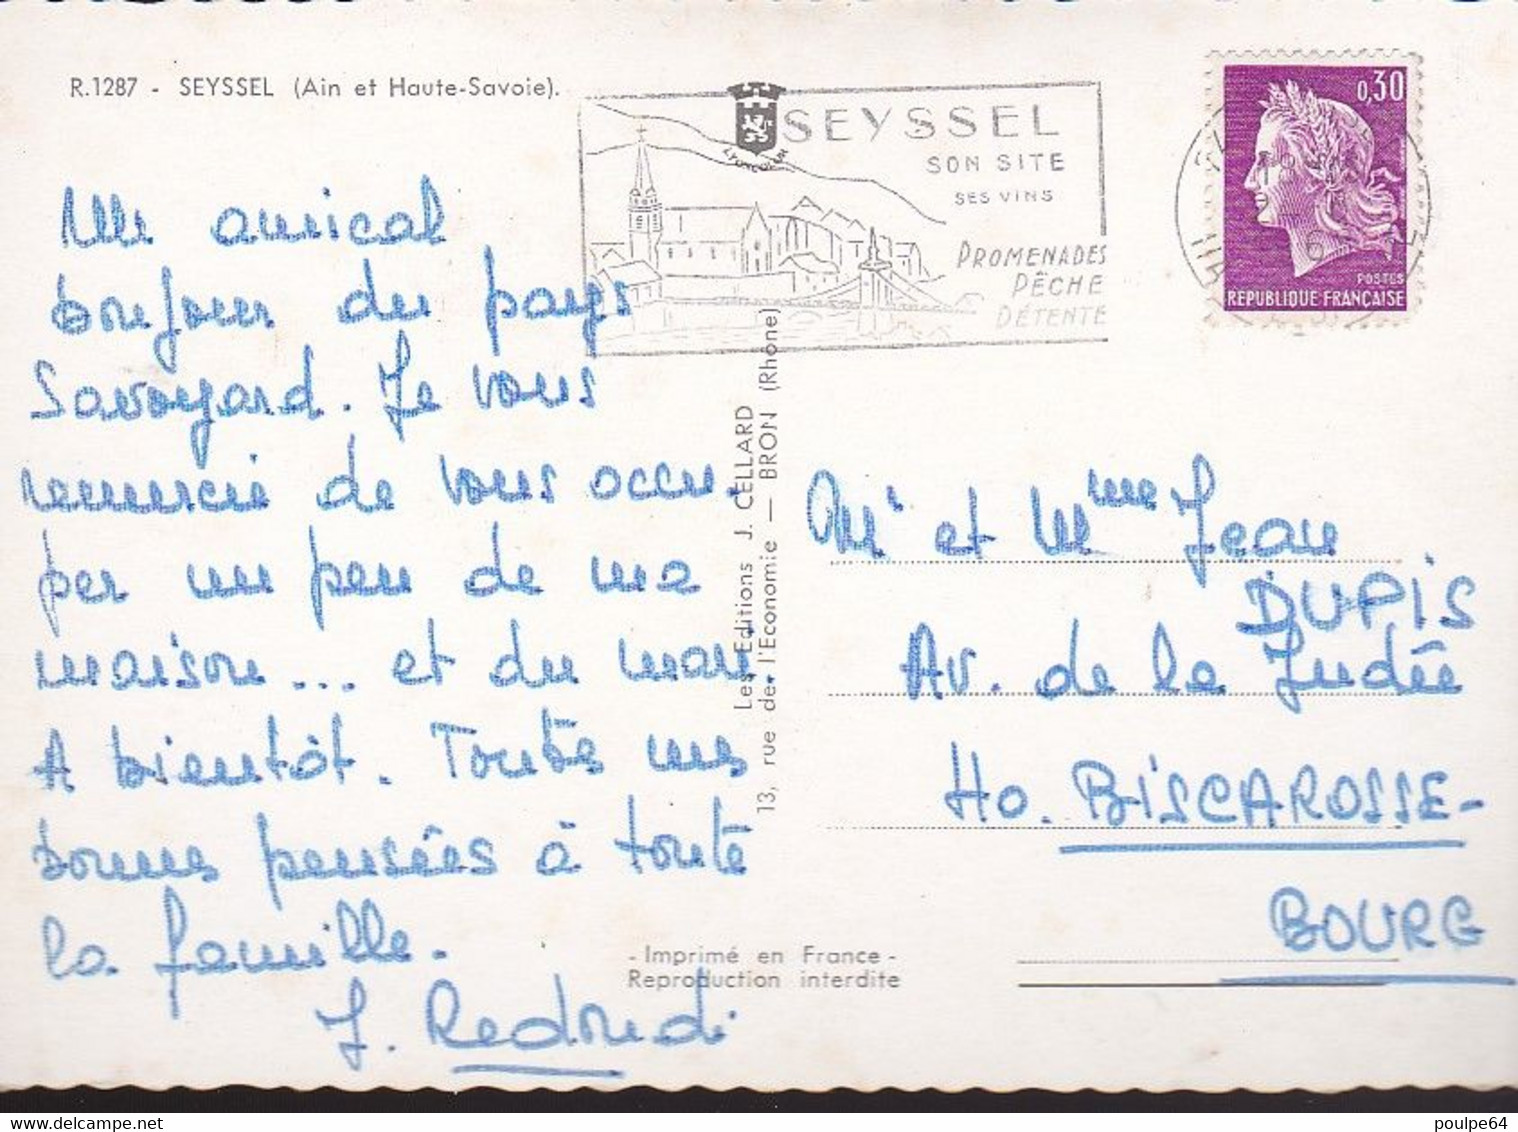 R.1287 - SEYSSEL (Ain et Haute-Savoie).
SEYSSEL
SON SITE
SES VINS
PROMENADES
PÊCHE
DÉTENTE
0,30
POSTES
REPUBLIQUE FRANÇAISE
Un amical
bonjour du pays
Savoyard. Je vous
remercie de vous occu-
per un peu de ma
maison... et du mari
A bientôt. Toutes mes
bonnes pensées à toute
la famille.
J. Redondi
Les Editions J. CELLARD
13, rue de l'Economie — BRON (Rhône)
Mr et Mme Jean
DUPIS
Av. de la Judée
40. BISCAROSSE-
BOURG
- Imprimé en France -
Reproduction interdite
delcampe.net
poulpe64